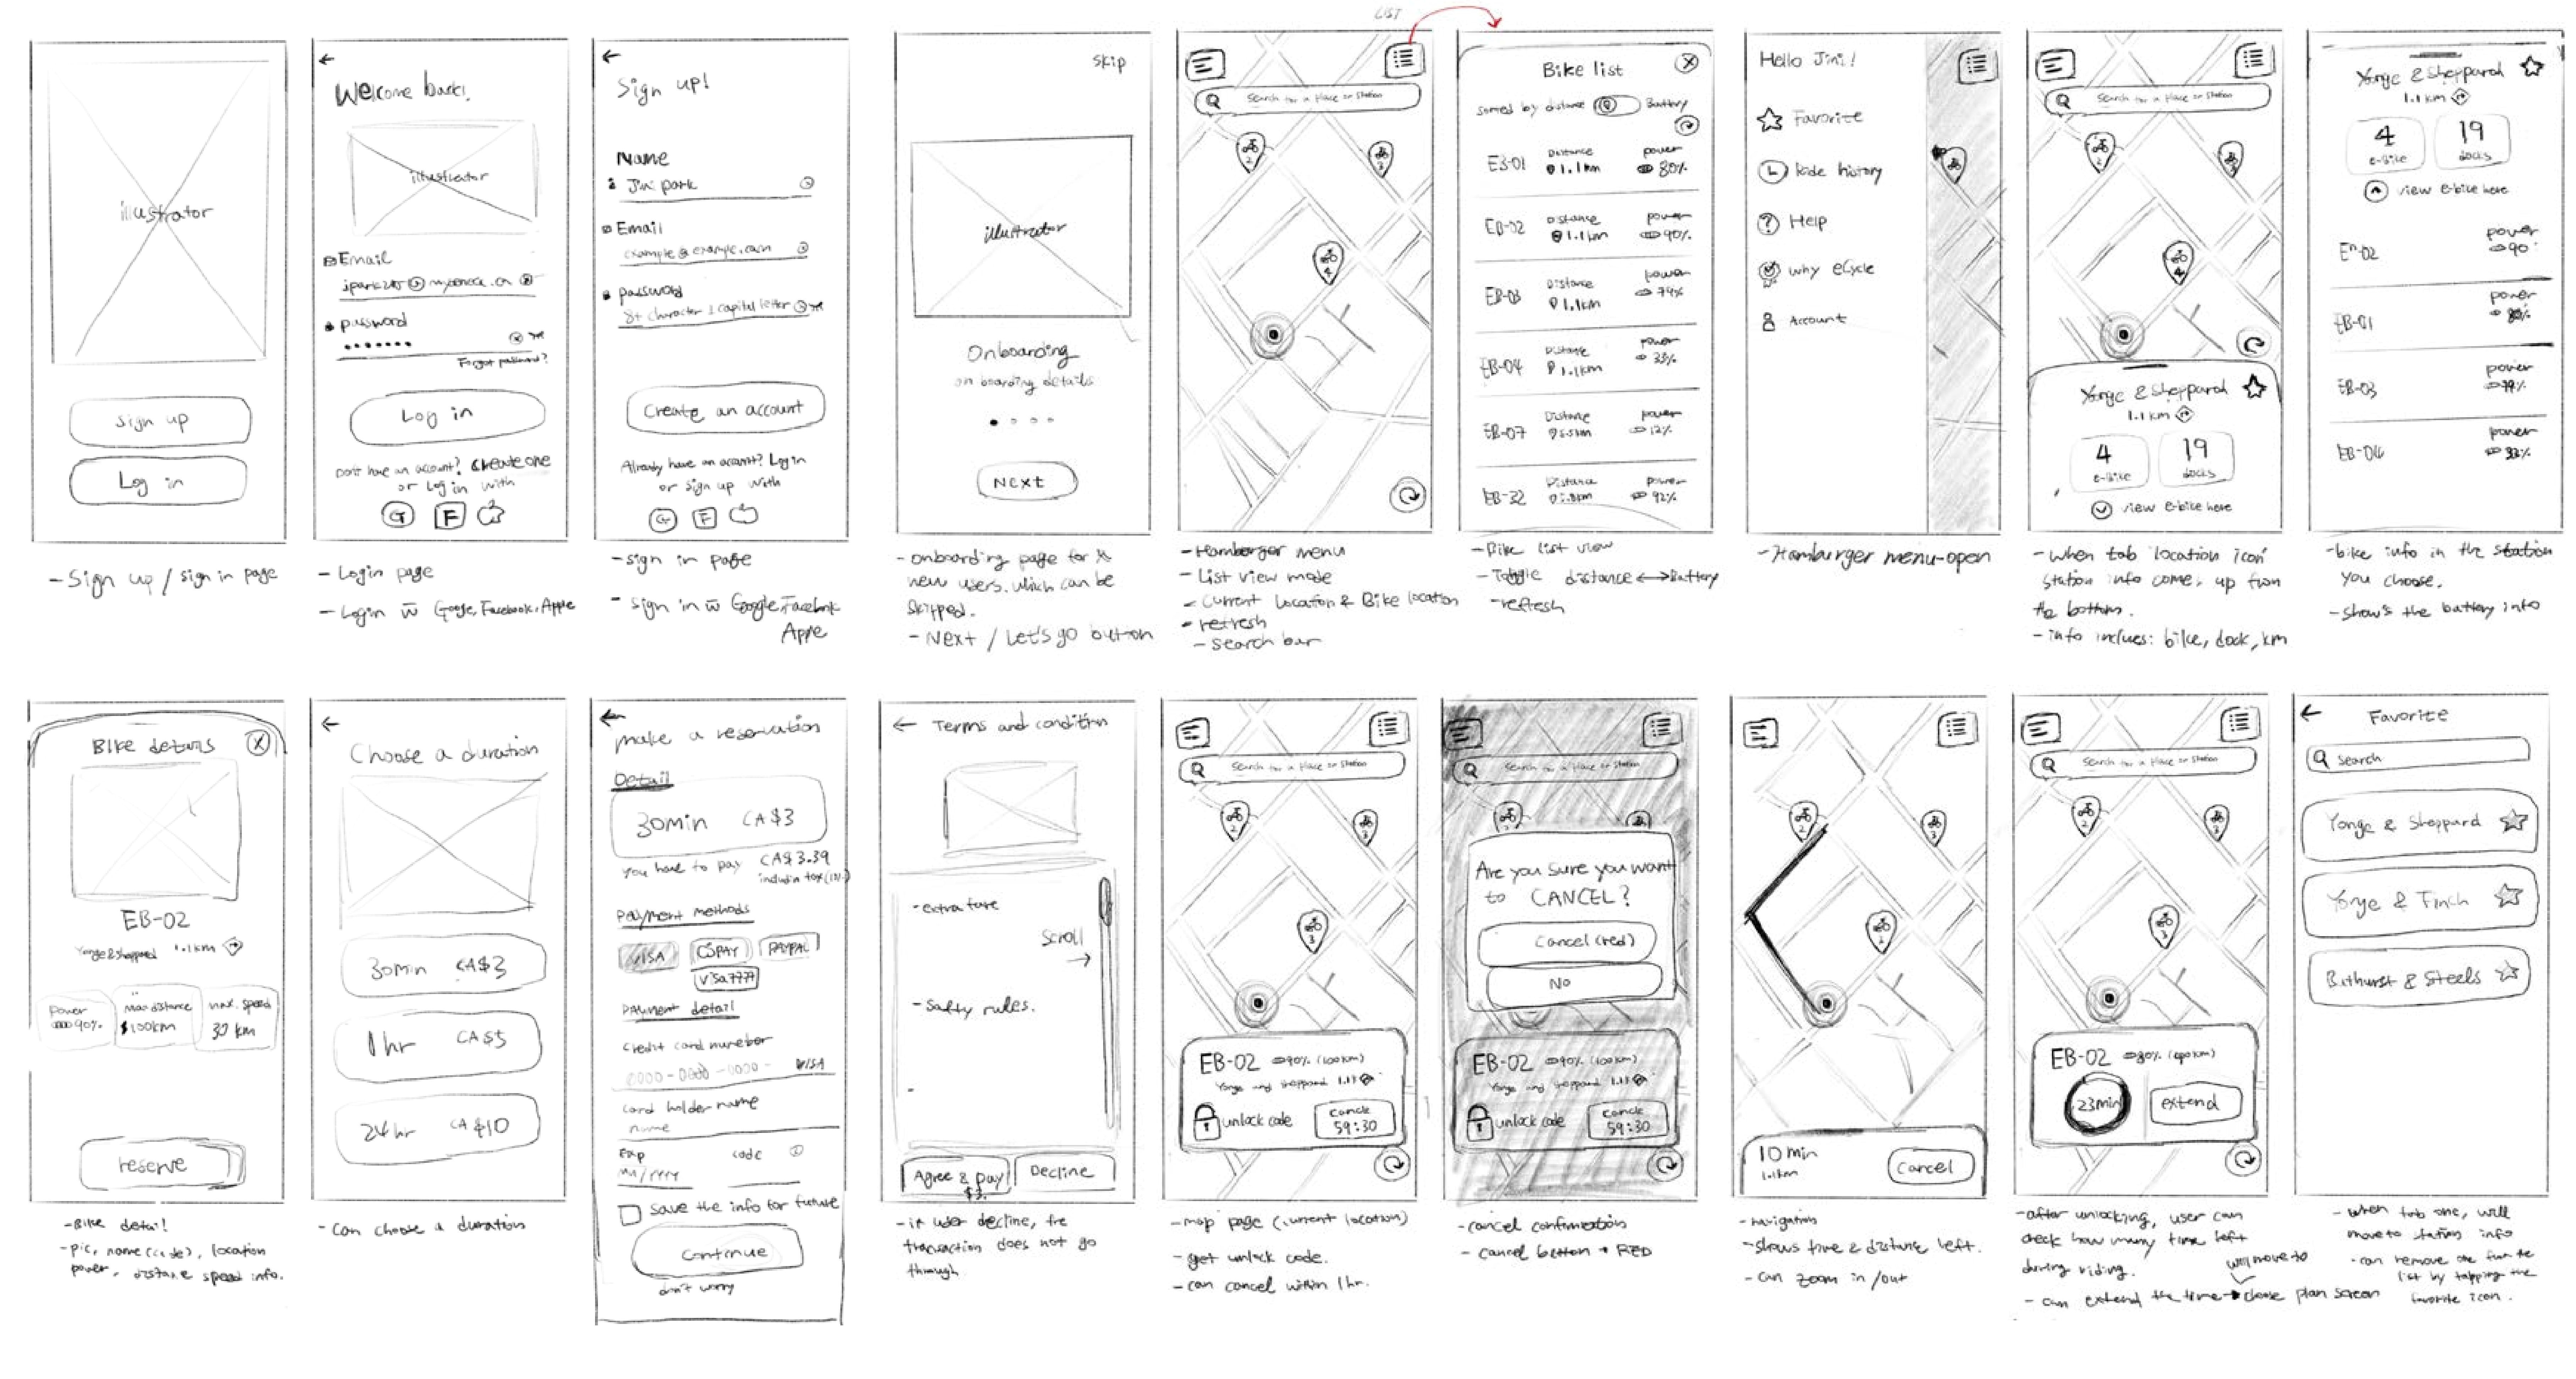 LIST
illustrator
Sign up
Log in
- Sign up / sign in page
←
Welcome back!
illustrator
Email
password
Forgot password?
Log in
Don't have an account? Create one
or Log in with
G F
- Login page
- Login w̄ Google, Facebook, Apple
←
Sign up!
Name
Jini park
Email
example@example.com
password
8+ character 1 capital letter
Create an account
Already have an account? Log in
or sign up with
G F
- sign in page
- sign in w̄ Google, Facebook
Apple
skip
illustrator
Onboarding
on boarding details
Next
- onboarding page for
new users. which can be
skipped.
- Next / Let's go button
Search for a Place or Station
2
3
4
- Hamberger menu
- List view mode
- Current Location & Bike location
- refresh
- search bar
Bike list
sorted by distance Battery
Distance power
EB-01 1.1km 80%
Distance power
EB-02 1.1km 90%
Distance power
EB-03 1.1km 79%
Distance power
EB-04 1.1km 33%
Distance power
EB-07 12%
Distance power
EB-32 92%
- Bike list view
- Toggle distance ↔ Battery
- refresh
Hello Jini!
Favorite
Ride history
? Help
why eCycle
Account
- Hamburger menu-open
Search for a Place or Station
2
3
4
Yonge & Sheppard
1.1 km
4 19
e-Bike docks
view e-bike here
- when tab location icon
station info comes up from
the bottom.
- info inclues: bike, dock, km
Yonge & Sheppard
1.1 km
4 19
e-Bike docks
view e-bike here
power
EB-02 90
power
EB-01
power
EB-03 79%
power
EB-04 33%
- bike info in the station
you choose.
- show's the battery info
Bike details
EB-02
Yonge & Sheppard 1.1km
power max distance max. speed
90% 100km 30 km
reserve
- Bike detail
- pic, name (code), location
power, distance speed info.
←
Choose a duration
30min CA$3
1 hr CA$5
24hr CA$10
- Can choose a duration
←
make a reservation
Detail
30min CA$3
you have to pay CA$3.39
Payment methods
VISA PAYPAL
Visa 7777
payment detail
Credit card number
0000 - 0000 - 0000 - VISA
card holder name
name
Exp code
save the info for future
continue
don't worry
← Terms and condition
- extra fare
Scroll
→
- Safty rules.
-
Agree & pay Decline
$3
- if user decline, the
transaction does not go
through.
Search for a Place or Station
2
3
3
EB-02 90% (100km)
Yonge and Sheppard
unlock code cancle
59:30
- map page (current location)
- get unlock code.
- can cancel within 1hr.
Search for a Place or Station
Are you sure you want
to CANCEL?
Cancel (red)
No
EB-02 90% (100km)
Yonge and Sheppard
unlock code cancle
59:30
- cancel confirmation
- cancel button → RED
2
3
10 min
1.1km
Cancel
- navigation
- shows time & distance left.
- can zoom in/out
Search for a Place or Station
2
3
3
EB-02 80%
23min extend
- after unlocking, user can
check how many time left
during riding.
will move to
- can extend the time → choose plan screen
← Favorite
search
Yonge & Sheppard
Yonge & Finch
Bathurst & Steels
- when tab one, will
move to station info
- can remove one from the
list by tapping the
favorite icon.